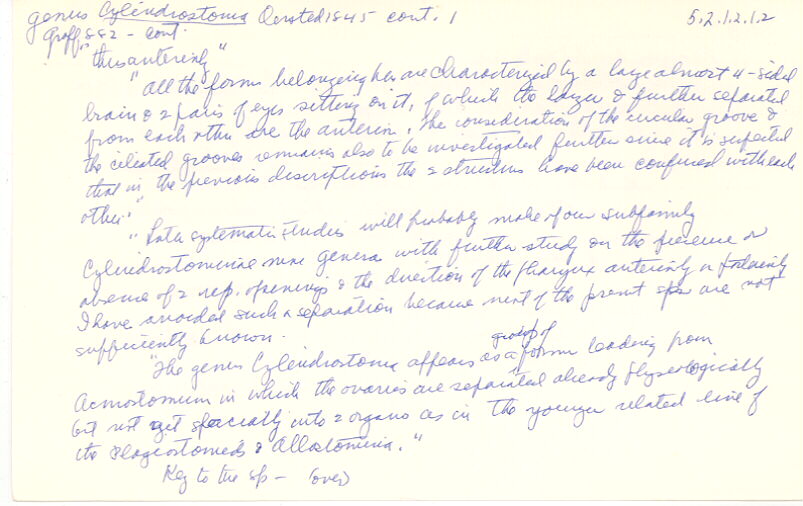 genus Cylindrostoma Oersted 1845 cont. 1 5.2.1.2.1.2
Graff 882 - cont.
"thus anteriorly"
"All the forms belonging here are characterized by a large almost 4-sided
brain & 2 pairs of eyes sitting on it, of which the larger & further separated
from each other are the anterior. The consideration of the circular groove &
the ciliated grooves remains also to be investigated further since it is suspected
that in the previous descriptions the 2 structures have been confused with each
other."
"Later systematic studies will probably make of our subfamily
Cylindrostominae new genera with further study on the presence or
absence of 2 rep. openings & the direction of the pharynx anteriorly or posteriorly
I have avoided such a separation because most of the present spp are not
sufficiently known.
"The genus Cylindrostoma appears as a group of forms leading from
Acmostomum in which the ovaries are separated already physiologically
but not yet spacially into 2 organs as in the younger related line of
the Plagiostomids & Allostomina."
Key to the sp - (over)